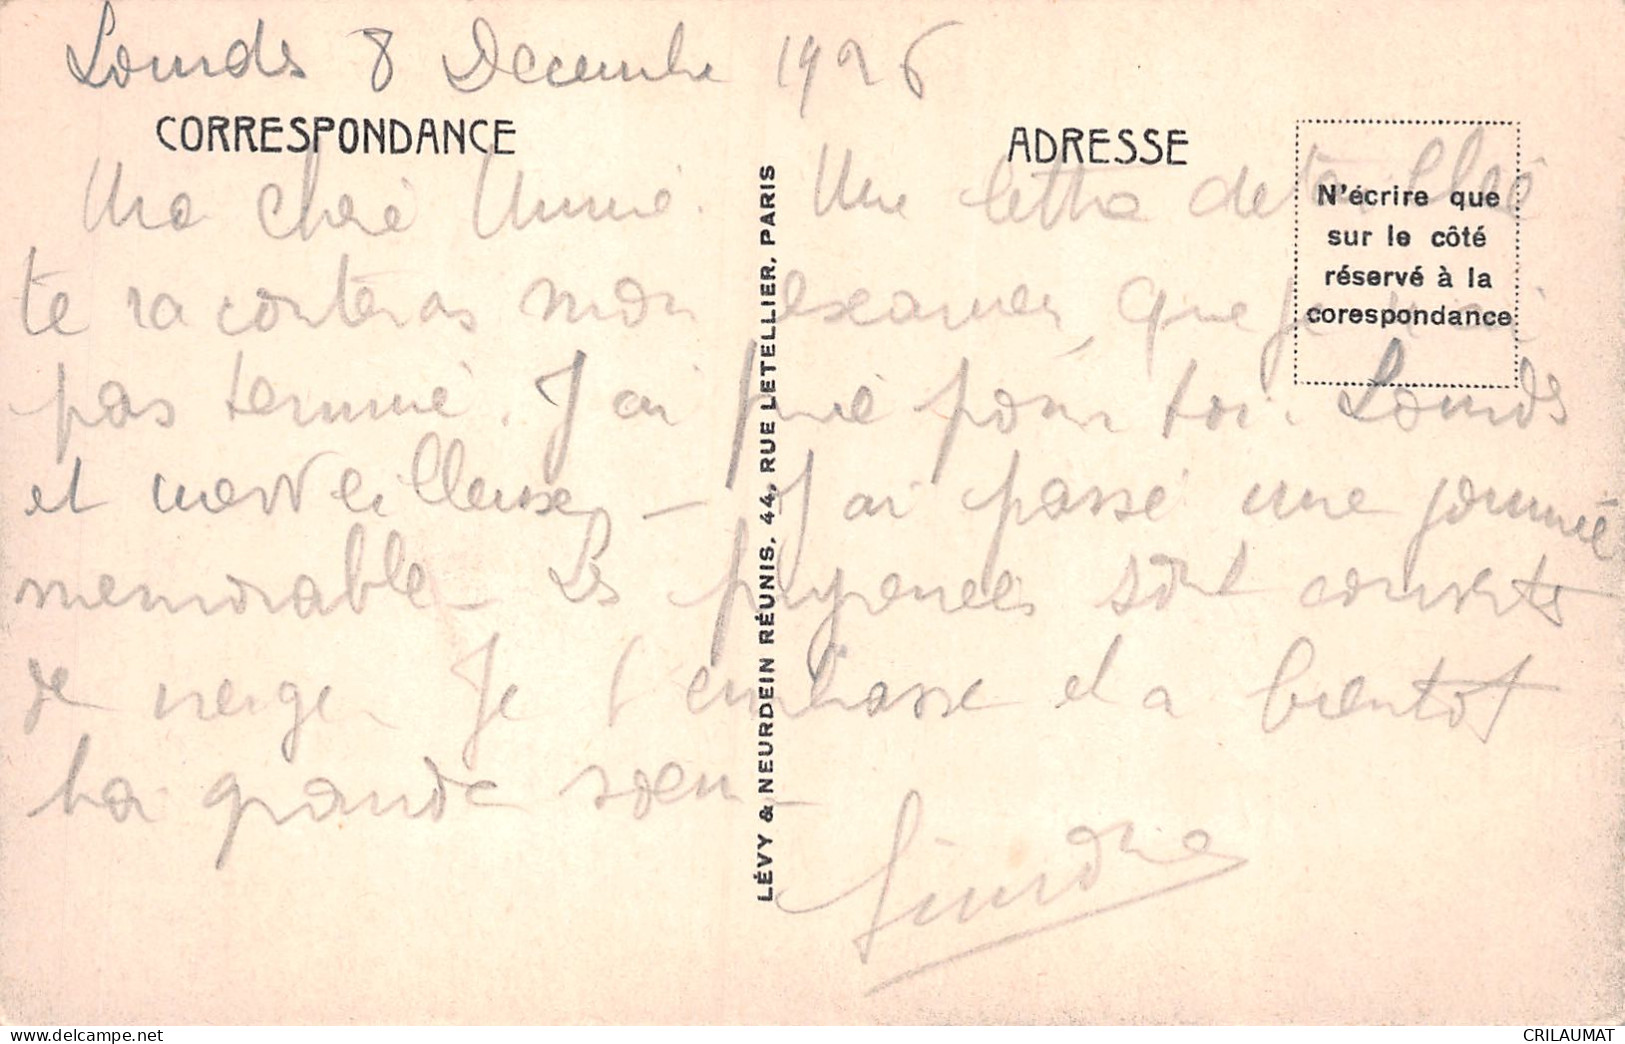 Lourdes 8 Decembre 1926
CORRESPONDANCE
ADRESSE
Ma chere Annie. Une lettre detaillee
te racontera mon examen que je n'ai
pas terminé. J'ai prié pour toi. Lourdes
et merveilleuse, – J'ai passé une journee
memorable – Les pyrenees sont couverts
de neige. Je t'embrasse et a bientot
ta grande soeur –
N'écrire que
sur le côté
réservé à la
corespondance
LÉVY & NEURDEIN RÉUNIS, 44, RUE LETELLIER, PARIS
delcampe.net
CRILAUMAT